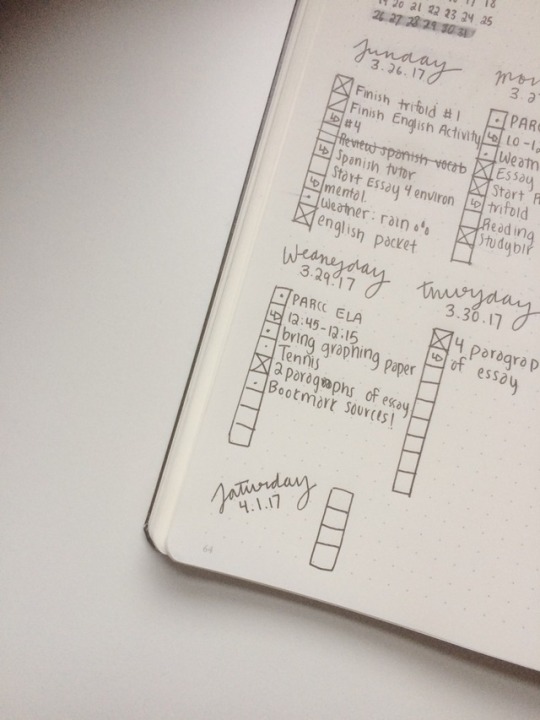 19 20 21 22 23 24 25
26 27 28 29 30 31
Sunday
3.26.17
Finish trifold #1
Finish English Activity
#4
Review spanish vocab
Spanish tutor
Start Essay 4 environ
mental.
Weather: rain
english packet
3.2
PARC
10-1
Weath
Essay
Start
trifold
Reading
Studyblr
Wednesday
3.29.17
PARCC ELA
12:45-12:15
bring graphing paper
Tennis
2 paragraphs of essay
Bookmark sources!
Thursday
3.30.17
4 paragrap
of essay
Saturday
4.1.17
64